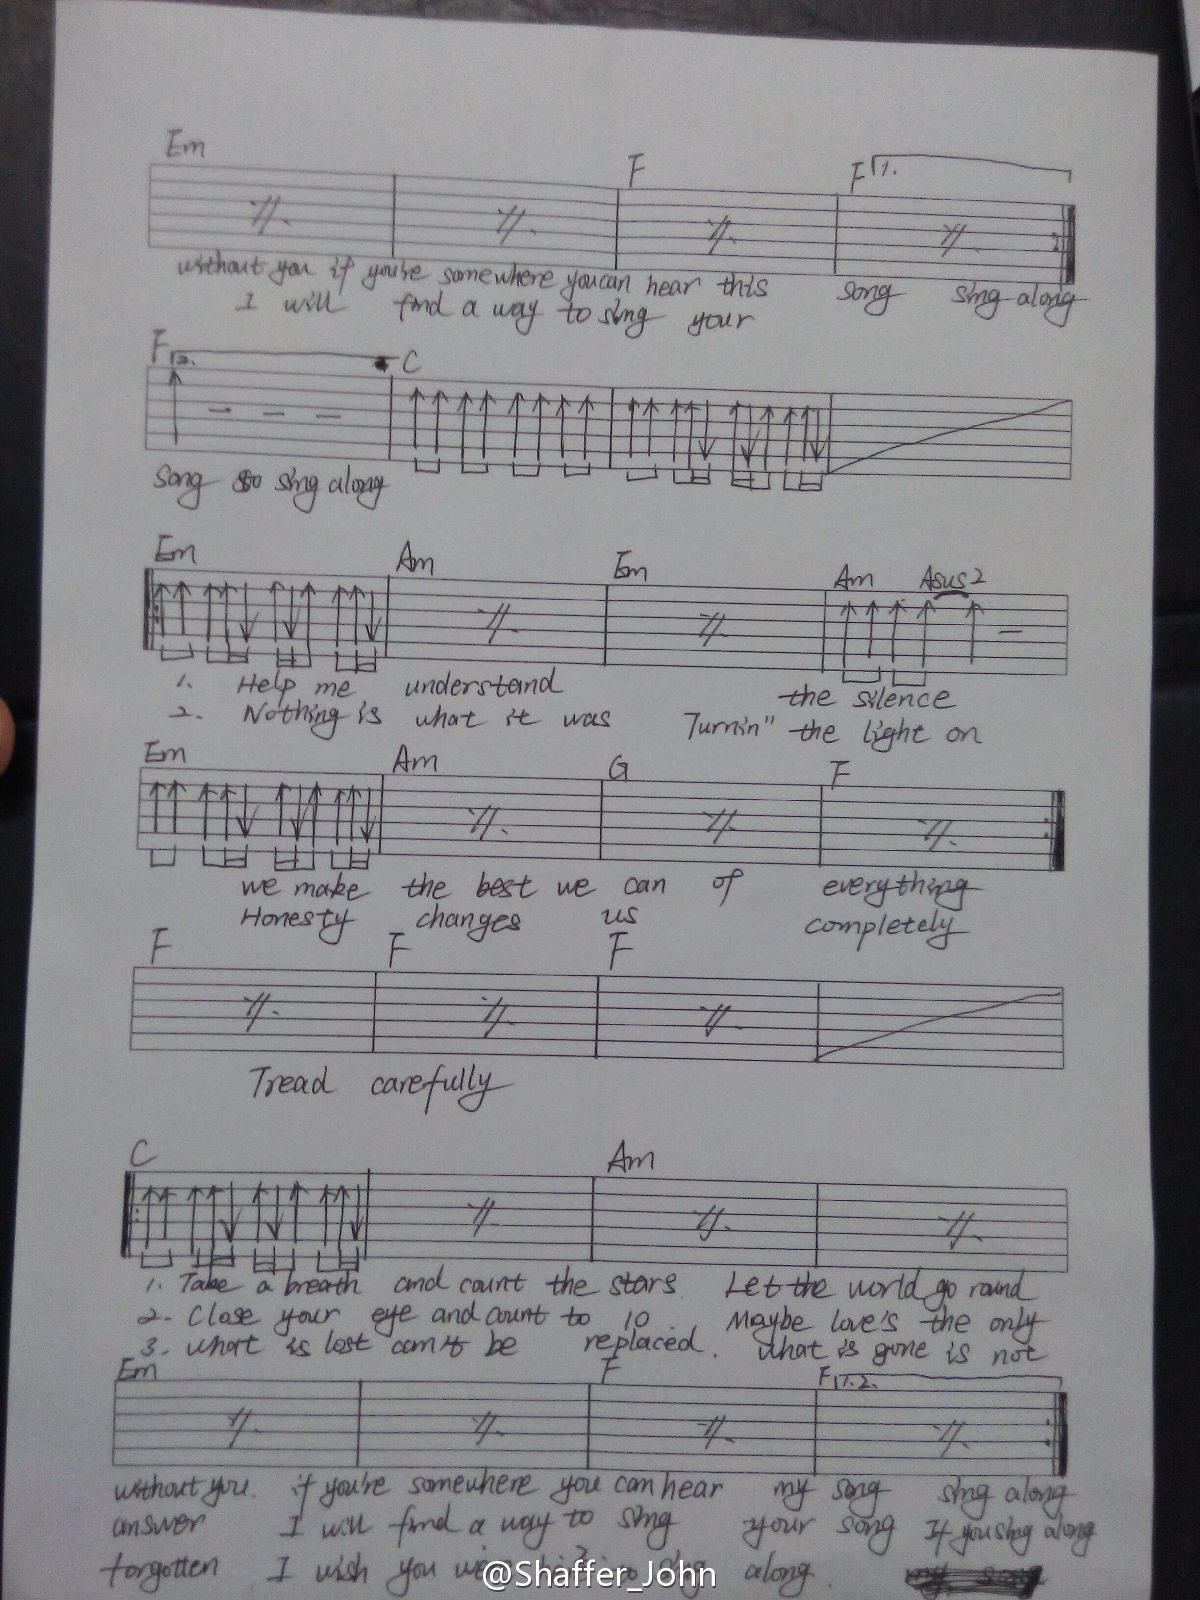 Em F F 1.
without you if you're somewhere you can hear this song sing along
I will find a way to sing your
F 2. C
song so sing along
Em Am Em Am Asus2
1. Help me understand the silence
2. Nothing is what it was Turnin" the light on
Em Am G F
we make the best we can of everything
Honesty changes us completely
F F F
Tread carefully
C Am
1. Take a breath and count the stars. Let the world go round
2. Close your eye and count to 10. Maybe love's the only
3. what is lost can't be replaced. what is gone is not
Em F F 1.2.
without you. if you're somewhere you can hear my song sing along
answer I will find a way to sing your song If you sing along
forgotten I wish you to sing along.
@Shaffer_John